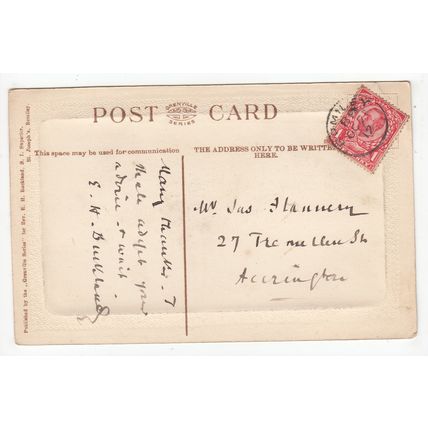 POST CARD
GRENVILLE
SERIES
This space may be used for communication
THE ADDRESS ONLY TO BE WRITTEN
HERE.
Many thanks. I
shall adopt your
advice & wait.
E. H. Buckland
Mr Jas Flannery
27 Tremellen St
Accrington
ROMILEY
12
Published by the "Grenville Series" by Rev. E. H. Buckland, S. J. Superior,
St. Joseph's, Romiley.